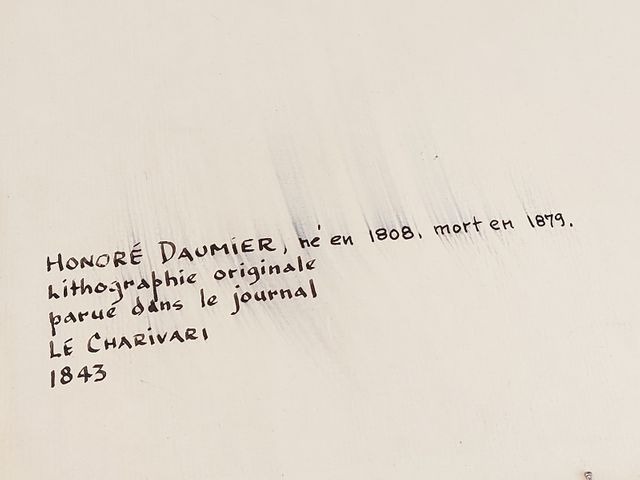 HONORÉ DAUMIER, né en 1808. mort en 1879.
Lithographie originale
parue dans le journal
LE CHARIVARI
1843